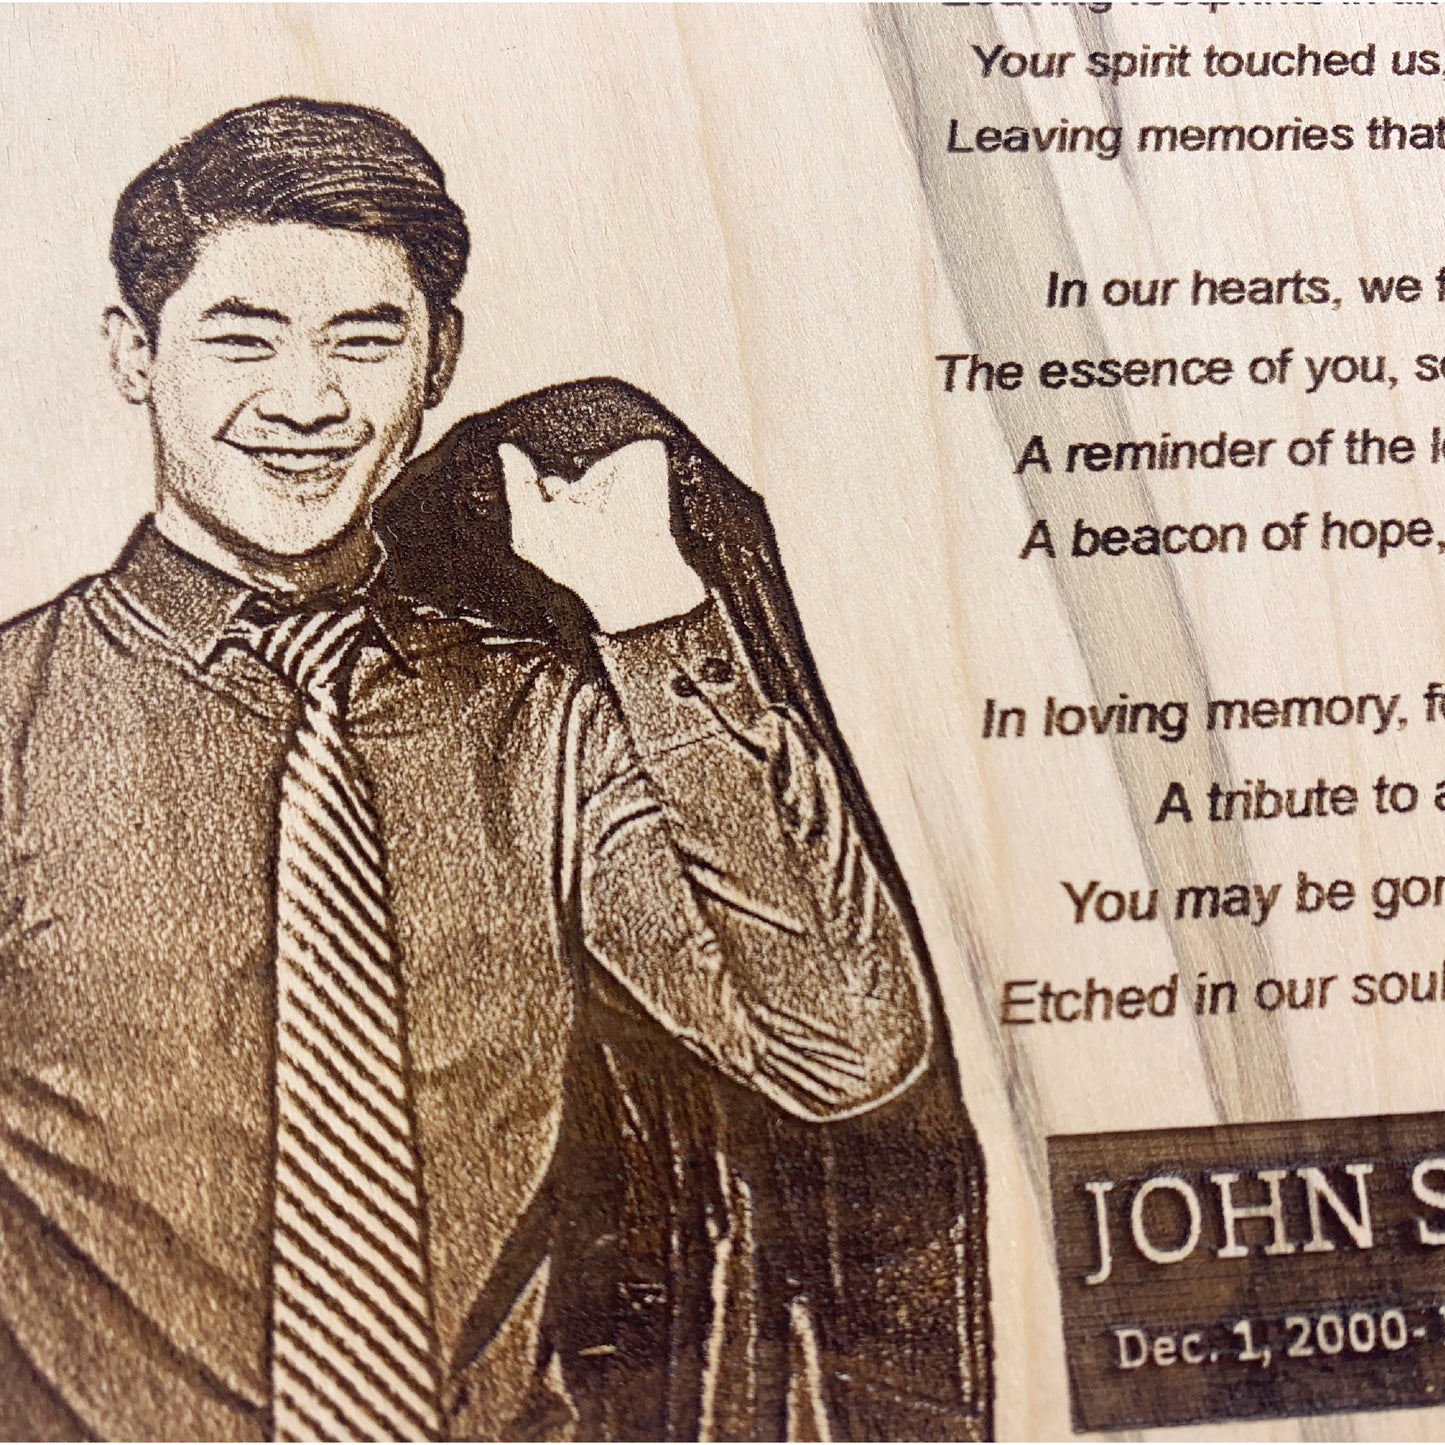 Your spirit touched us,
Leaving memories that
In our hearts, we
The essence of you,
A reminder of the
A beacon of hope,
In loving memory,
A tribute to
You may be
Etched in our
JOHN S
Dec. 1, 2000-